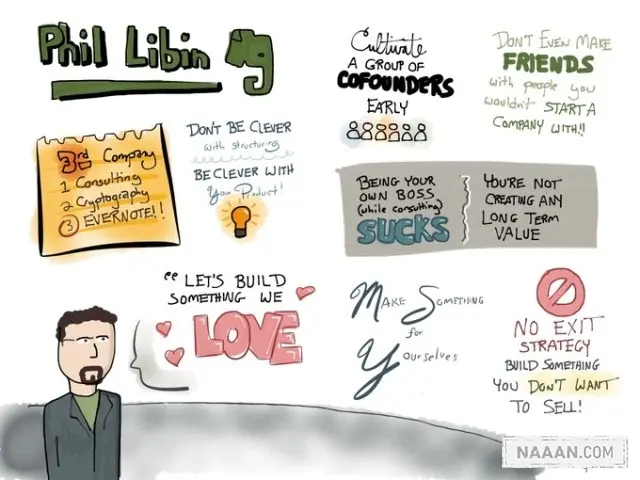 Phil Libin
Cultivate
A GROUP OF
COFOUNDERS
EARLY
DON'T EVEN MAKE
FRIENDS
with people you
wouldn't START A
COMPANY WITH!!
3rd Company
1 Consulting
2 Cryptography
3 EVERNOTE!!
DON'T BE CLEVER
with structuring
BE CLEVER WITH
Your Product!
BEING YOUR
OWN BOSS
(while consulting)
SUCKS
YOU'RE NOT
CREATING ANY
LONG TERM
VALUE
"LET'S BUILD
SOMETHING WE
LOVE
MAKE SOMETHING
for
Yourselves
NO EXIT
STRATEGY
BUILD SOMETHING
YOU DON'T WANT
TO SELL!
NAAAN.COM